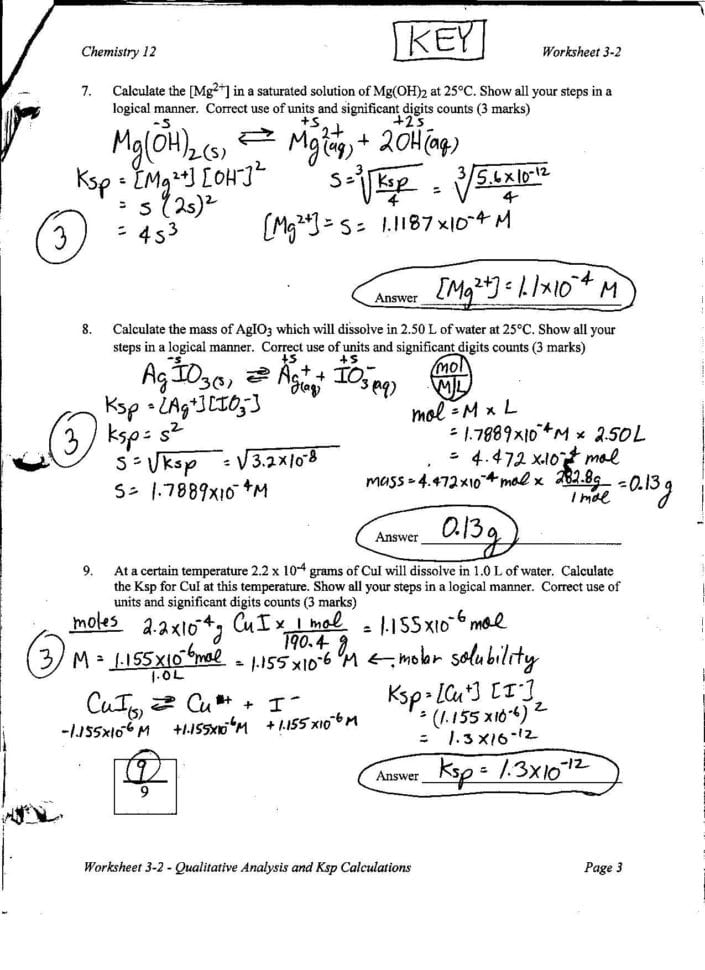 KEY
Chemistry 12 Worksheet 3-2
7. Calculate the [Mg²⁺] in a saturated solution of Mg(OH)₂ at 25°C. Show all your steps in a
logical manner. Correct use of units and significant digits counts (3 marks)
-s +s +2s
Mg(OH)₂(s) ⇌ Mg²⁺(aq) + 2OH⁻(aq)
Ksp = [Mg²⁺][OH⁻]²
= s (2s)²
= 4s³
s = ³√(Ksp/4) = ³√(5.6x10⁻¹²/4)
[Mg²⁺] = s = 1.1187 x10⁻⁴ M
3
Answer [Mg²⁺] = 1.1x10⁻⁴ M
8. Calculate the mass of AgIO₃ which will dissolve in 2.50 L of water at 25°C. Show all your
steps in a logical manner. Correct use of units and significant digits counts (3 marks)
-s +s +s
AgIO₃(s) ⇌ Ag⁺(aq) + IO₃⁻(aq)
Ksp = [Ag⁺][IO₃⁻]
ksp = s²
s = √Ksp = √3.2x10⁻⁸
s = 1.7889x10⁻⁴M
3
mol
M|L
mol = M x L
= 1.7889x10⁻⁴M x 2.50L
= 4.472 x10⁻⁴ mol
mass = 4.472x10⁻⁴ mol x 282.8g/1 mol = 0.13 g
Answer 0.13g
9. At a certain temperature 2.2 x 10⁻⁴ grams of CuI will dissolve in 1.0 L of water. Calculate
the Ksp for CuI at this temperature. Show all your steps in a logical manner. Correct use of
units and significant digits counts (3 marks)
moles 2.2x10⁻⁴g CuI x 1 mol/190.4 g = 1.155x10⁻⁶ mol
3
M = 1.155x10⁻⁶mol/1.0L = 1.155 x10⁻⁶ M ← molar solubility
CuI(s) ⇌ Cu⁺ + I⁻
-1.155x10⁻⁶ M +1.155x10⁻⁶M +1.155 x10⁻⁶M
Ksp = [Cu⁺] [I⁻]
= (1.155 x10⁻⁶)²
= 1.3 x10⁻¹²
9
9
Answer Ksp = 1.3x10⁻¹²
Worksheet 3-2 - Qualitative Analysis and Ksp Calculations Page 3